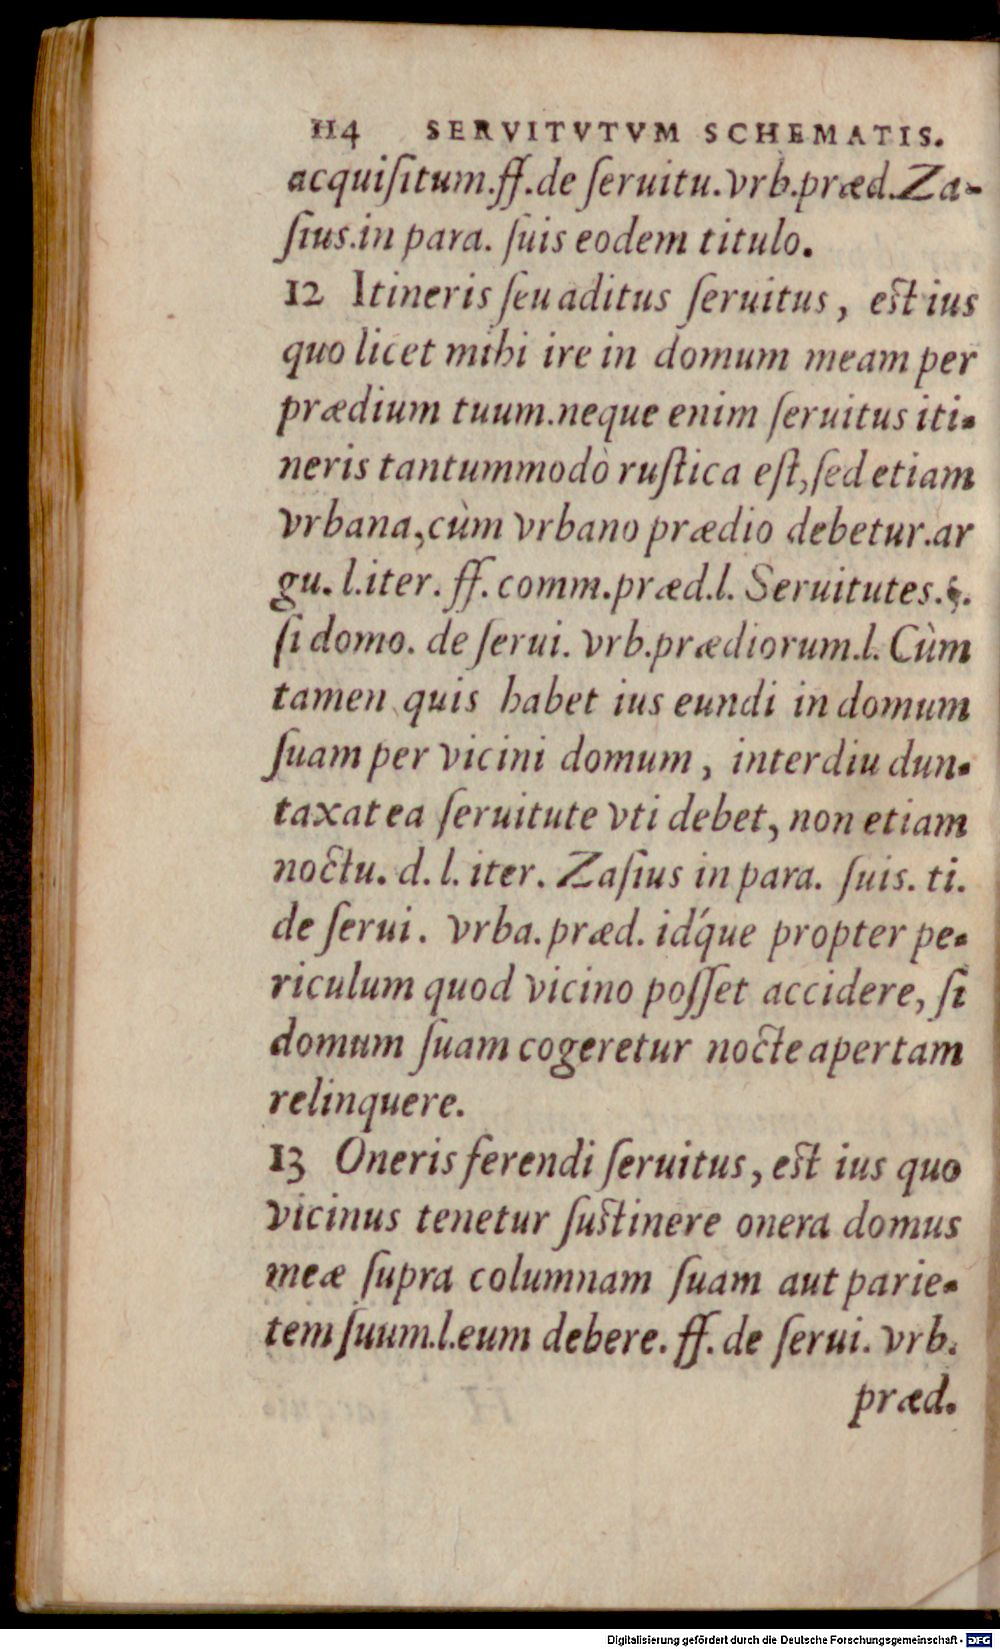 114 SERVITVTVM SCHEMATIS.
acquiſitum.ff.de ſeruitu.vrb.præd.Za-
ſius.in para. ſuis eodem titulo.
12 Itineris ſeu aditus ſeruitus, est ius
quo licet mihi ire in domum meam per
prædium tuum.neque enim ſeruitus iti-
neris tantummodò ruſtica eſt, ſed etiam
vrbana, cùm vrbano prædio debetur.ar
gu. l.iter. ff. comm.præd.l. Seruitutes.§.
ſi domo. de ſerui. vrb.prædiorum.l. Cùm
tamen quis habet ius eundi in domum
ſuam per vicini domum, interdiu dun-
taxat ea ſeruitute vti debet, non etiam
noctu. d. l. iter. Zaſius in para. ſuis. ti.
de ſerui. vrba. præd. id́que propter pe-
riculum quod vicino poſſet accidere, ſi
domum ſuam cogeretur nocte apertam
relinquere.
13 Oneris ferendi ſeruitus, est ius quo
vicinus tenetur ſustinere onera domus
meæ ſupra columnam ſuam aut parie-
tem ſuum.l.eum debere. ff. de ſerui. vrb.
præd.
Digitalisierung gefördert durch die Deutsche Forschungsgemeinschaft - DFG